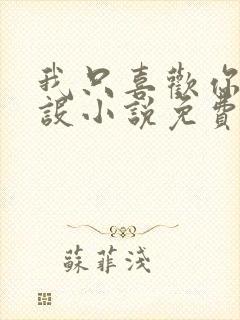 我只喜歡你
設小說免費
蘇菲淺